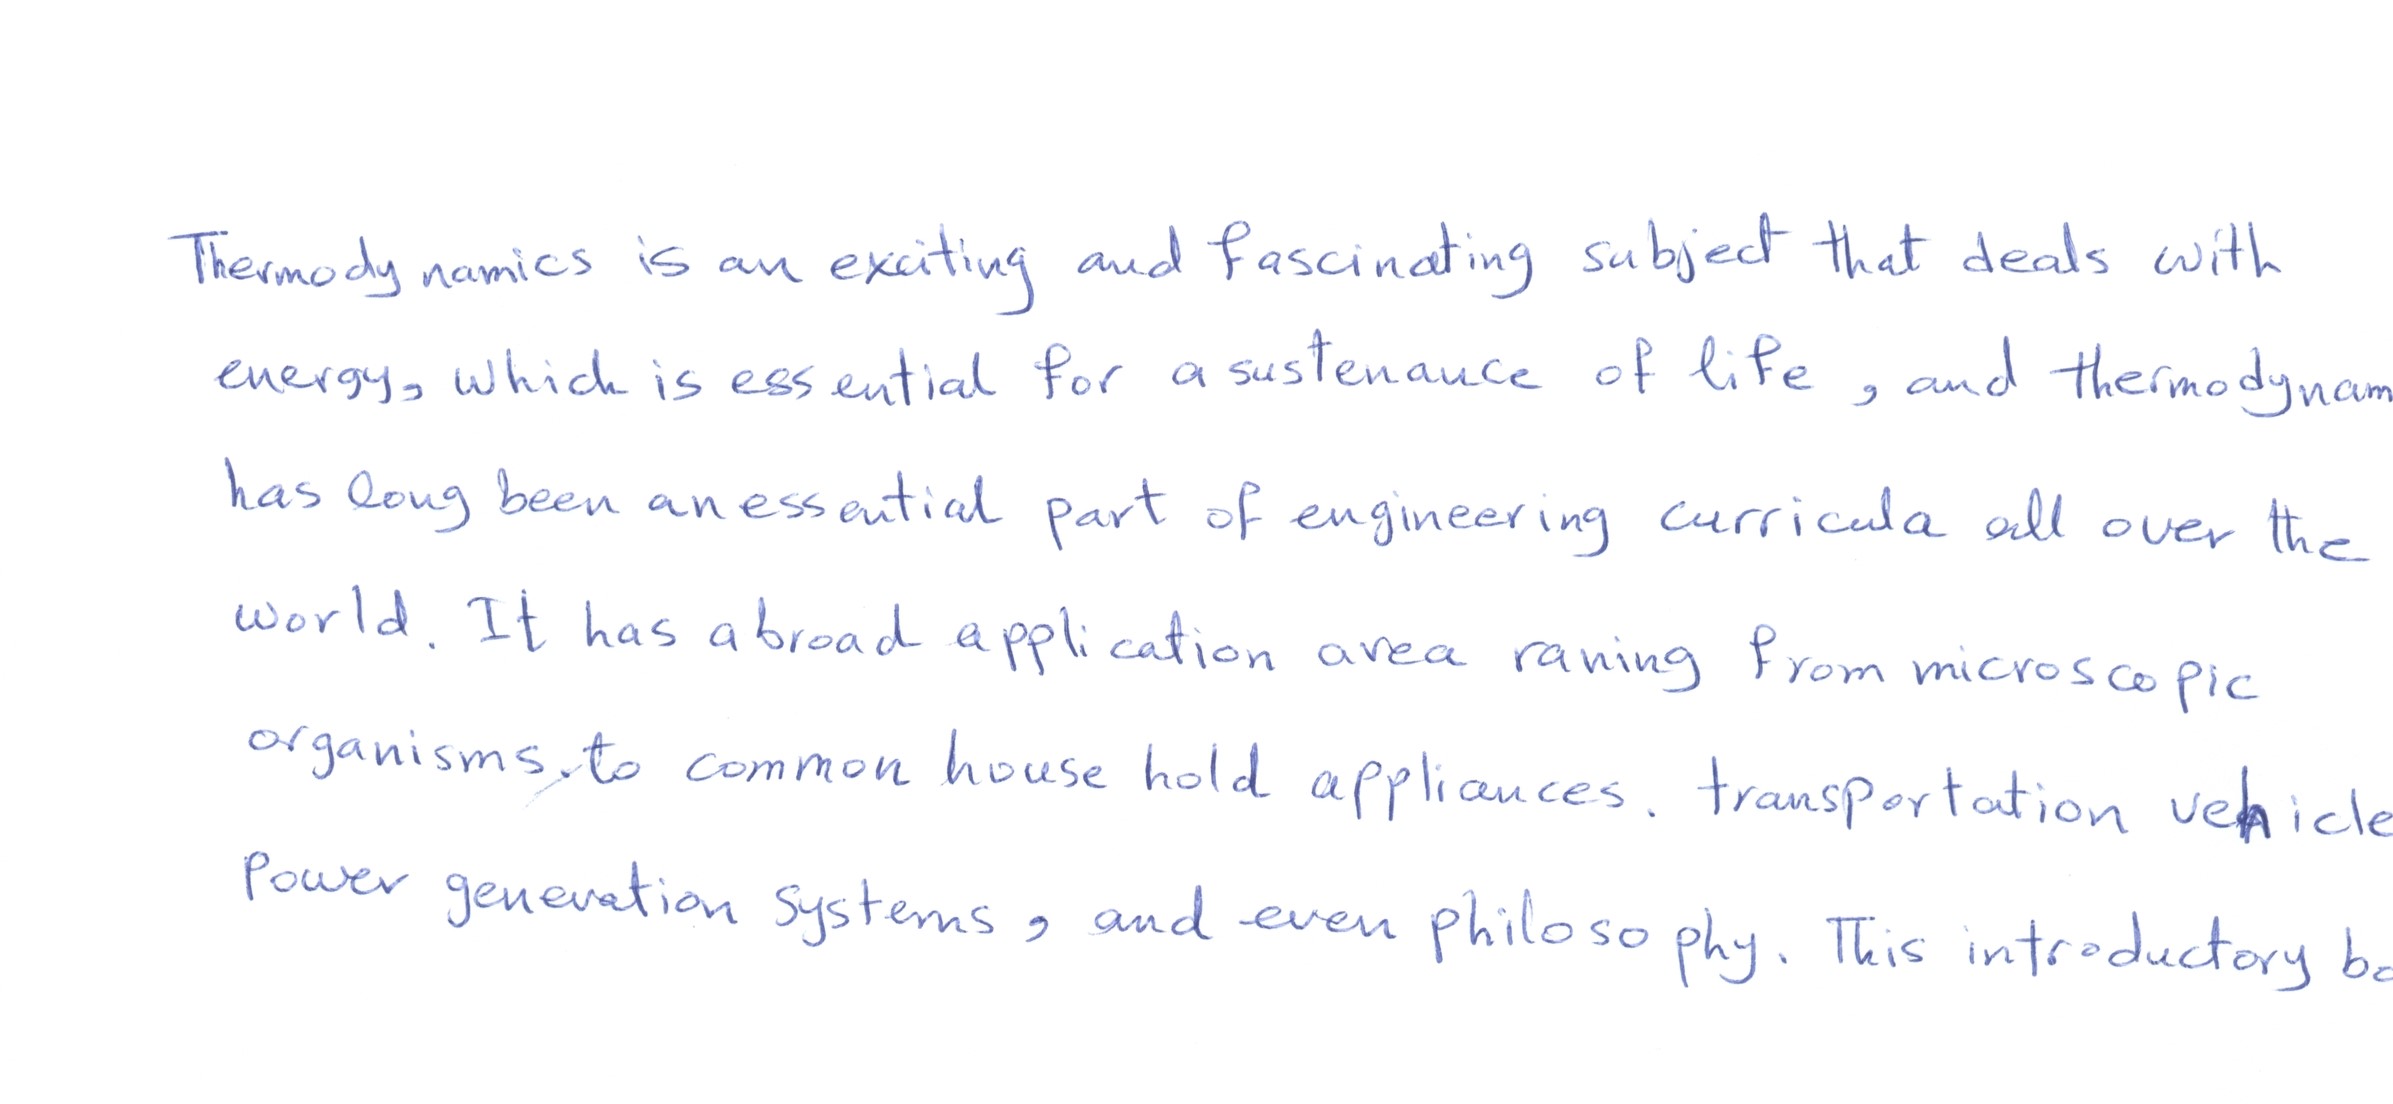 Thermodynamics is an exciting and fascinating subject that deals with
energy, which is essential for a sustenance of life , and thermodynam
has long been an essential part of engineering curricula all over the
world. It has a broad application area raning from microscopic
organisms. to common house hold appliances. transportation vehicle
Power generation systems , and even philosophy. This introductory bo